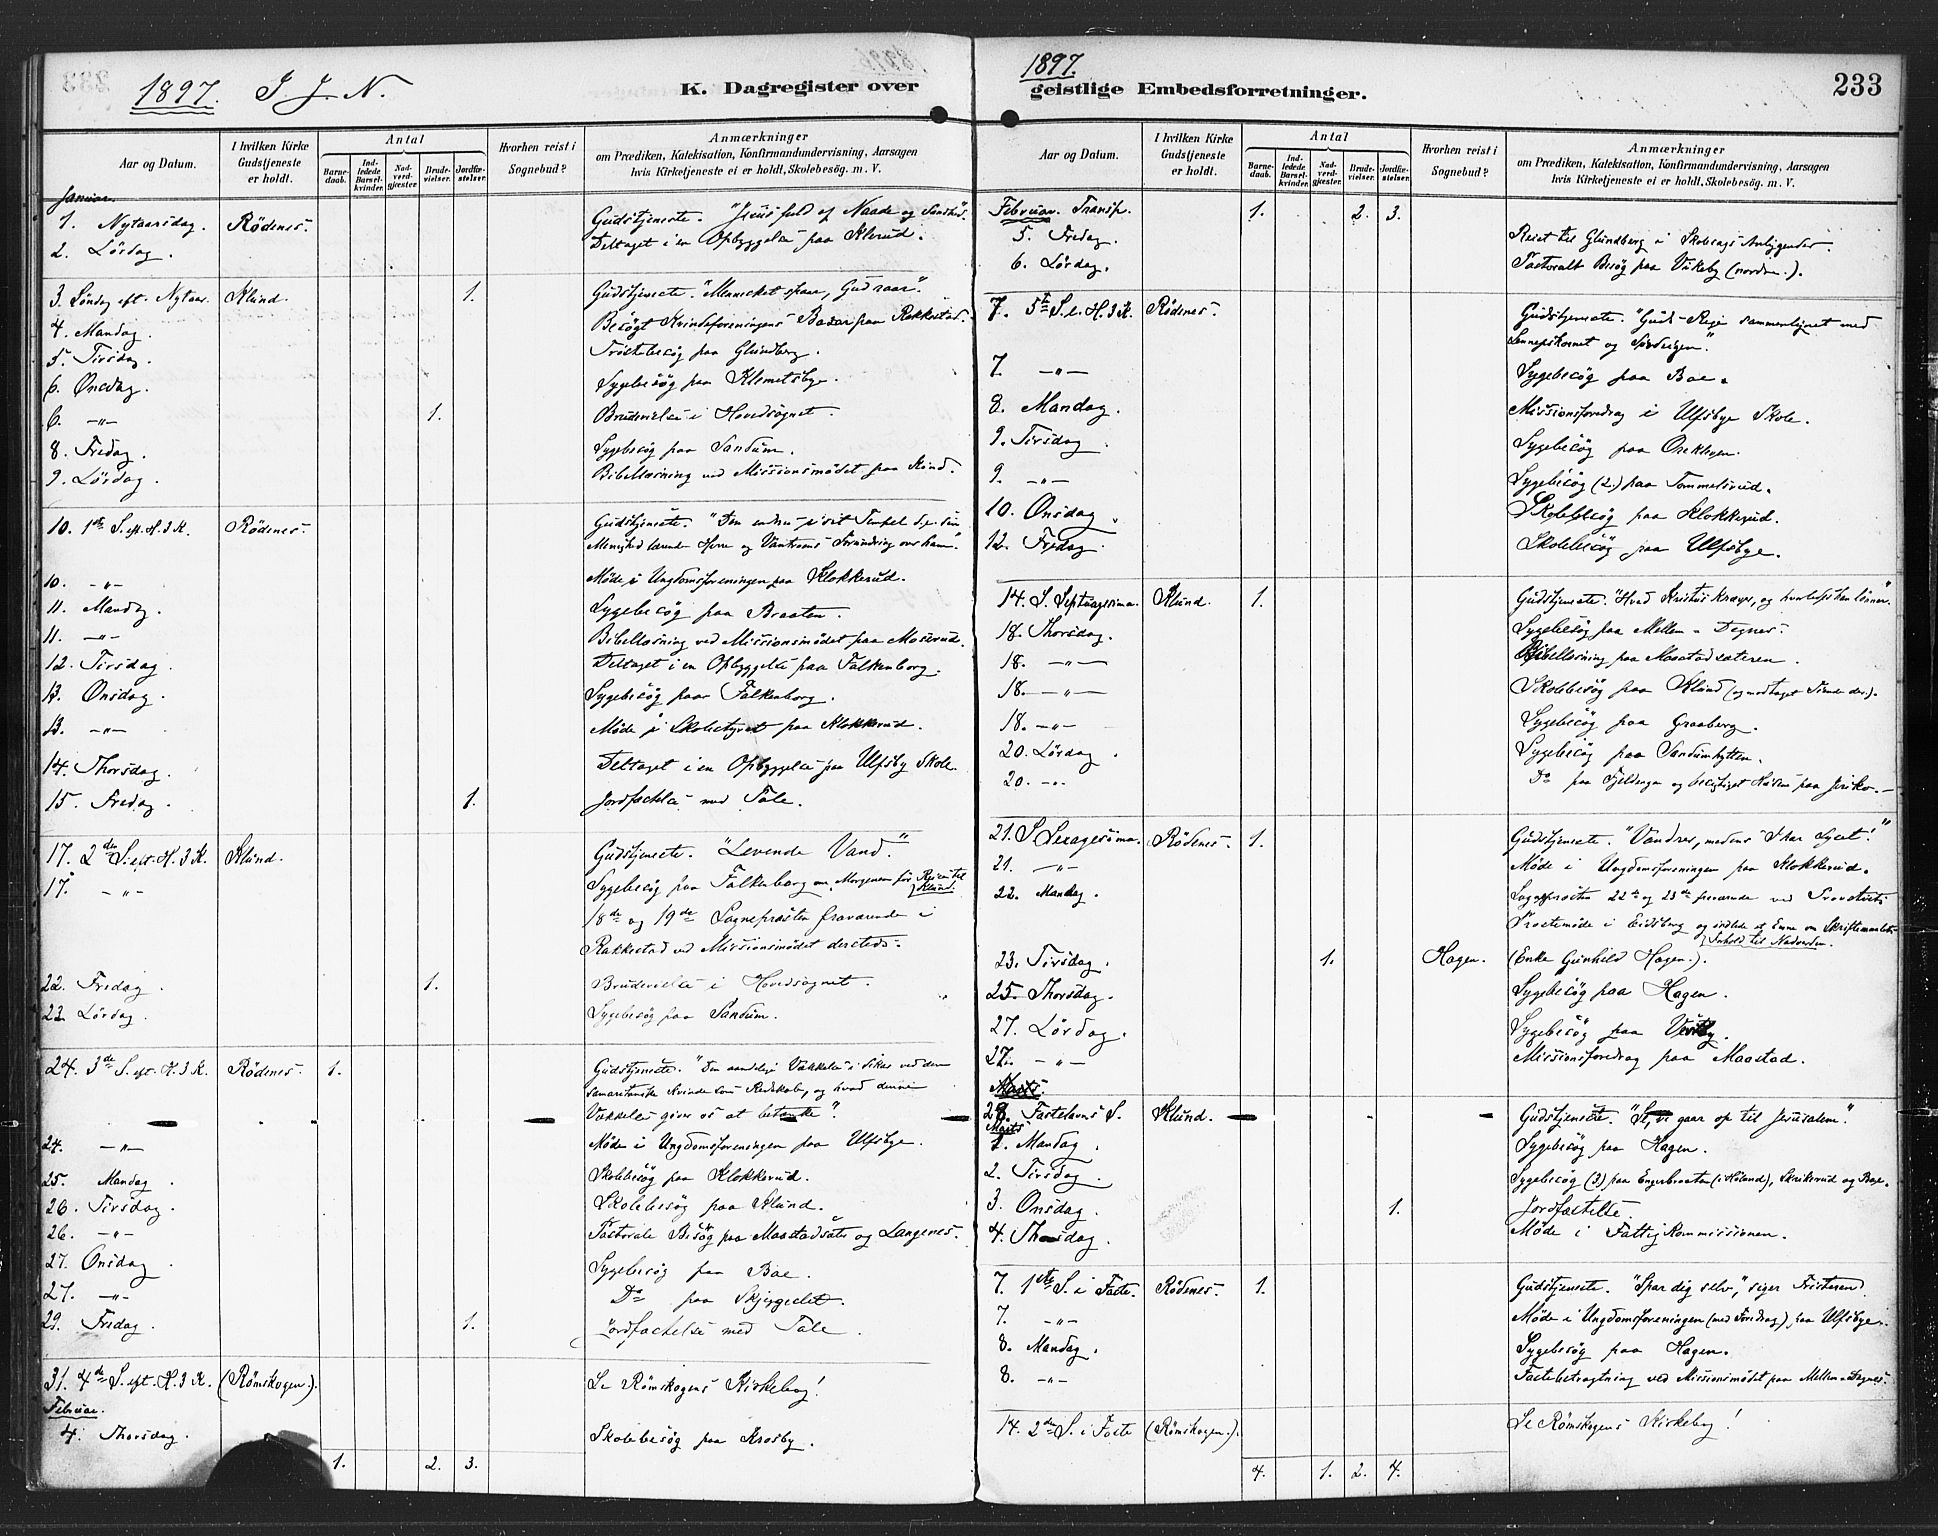 1897. I. J. N.
K. Dagregister over
Aar og Datum.
I hvilken Kirke Gudstjeneste er holdt.
Antal
Barnedaab.
Indledede Barselkvinder.
Nadverdgjester
Brudevielser.
Jordfæstelser.
Hvorhen reist i Sognebud?
Anmærkninger
om Prædiken, Katekisation, Konfirmandundervisning, Aarsagen
hvis Kirketjeneste ei er holdt, Skolebesøg. m. V.
Januar.
1. Nytaarsdag. Rødenes. Gudstjeneste. "Jesus fuld af Naade og Sandhed".
2. Lördag. Deltaget i en Opbyggelse paa Klerud.
3. Söndag eft. Nytaar. Klund. 1. Gudstjeneste. "Mennesket spaar, Gud raar".
4. Mandag. Besögt Kvindeforeningens Bazar paa Rakkestad.
5. Tirsdag. Tröstebesög paa Glundberg.
6. Onsdag. Sygebesög paa Klemetsbye.
6. -"- 1. Brudevielse i Hovedsognet.
8. Fredag. Sygebesög paa Sandum.
9. Lördag. Bibellæsning ved Missionsmödet paa Kind.
10. 1ste S. eft. H. 3 K. Rödenes. Gudstjeneste. "Den endnu i sit Tempel sin
Menighed lærende Herre og Vantroens Forundring over ham".
10. -"- Möde i Ungdomsforeningen paa Klokkerud.
11. Mandag Sygebesög paa Braaten.
11. -"- Bibellæsning ved Missionsmödet paa Moserud.
12. Tirsdag. Deltaget i en Opbyggelse paa Falkenborg.
13. Onsdag. Sygebesög paa Falkenborg.
13. -"- Möde i Skolestyret paa Klokkerud.
14. Thorsdag. Deltaget i en Opbyggelse paa Ulfsby Skole.
15. Fredag. 1. Jordfæstelse med Tale.
17. 2den S. eft. H. 3 K. Klund. Gudstjeneste. "Levende Vand."
17. -"- Sygebesög paa Falkenborg om Morgenen för Reisen til
Klund.
18de og 19de Sognepræsten fraværende i
Rakkestad ved Missionsmödet dersteds.
22. Fredag. 1. Brudevielse i Hovedsognet.
23. Lördag. Sygebesög paa Sandum.
24. 3de S. eft. H. 3 K. Rödenes. 1. Gudstjeneste. "Den aandelige Vækkelse i Sikar ved den
samaritanske Kvinde som Redskab, og hvad denne
Vækkelse giver os at betænke".
24. -"- Möde i Ungdomsforeningen paa Ulfsbye.
25. Mandag. Skolebesög paa Klokkerud.
26. Tirsdag. Skolebesög paa Klund.
26. -"- Pastorale Besög paa Maastadsæter og Langenes.
27. Onsdag Sygebesög paa Boe.
27. -"- Do paa Skjeggedet.
29. Fredag. 1. Jordfæstelse med Tale.
31. 4de S. eft. H. 3 K. (Römskogen.). Se Römskogens Kirkebog!
Februar.
4. Thorsdag. Skolebesög paa Krosby.
1. 2. 3.
1897.
geistlige Embedsforretninger.
233
Aar og Datum.
I hvilken Kirke Gudstjeneste er holdt.
Antal
Barnedaab.
Indledede Barselkvinder.
Nadverdgjester.
Brudevielser.
Jordfæstelser.
Hvorhen reist i Sognebud?
Anmærkninger
om Prædiken, Katekisation, Konfirmandundervisning, Aarsagen
hvis Kirketjeneste ei er holdt, Skolebesög. m. V.
Februar. Transp. 1. 2. 3.
5. Fredag. Reist til Glundberg i Skolesags Anliggender.
6. Lördag. Pastoralt Besög paa Vikeby (nordre.).
7. 5te S. e. H. 3 K. Rödenes. Gudstjeneste. "Guds Rige sammenlignet med
Sennepskornet og Surdeigen".
7. -"- Sygebesög paa Boe.
8. Mandag. Missionsforedrag i Ulfsbye Skole.
9. Tirsdag. Sygebesög paa
9. -"- Sygebesög (2.) paa Tommelsrud.
10. Onsdag. Skolebesög paa Klokkerud.
12. Fredag. Skolebesög paa Ulfsbye.
14. S. Septuagesima. Klund. 1. Gudstjeneste. "Hvad Kristus kræver, og hvorledes han lönner".
18. Thorsdag. Sygebesög paa Mellem-Degnes.
18. -"- Bibellæsning paa Maastadsæteren.
18. -"- Skolebesög paa Klund (og modtaget Tiende der.).
18. -"- Sygebesög paa Graaberg.
20. Lördag. Sygebesög paa Sandumhytten.
20. -"- Do paa Fjeldengen og besigtiget Husene paa Jeriko.
21. S. Sexagesima. Rödenes. 1. Gudstjeneste. "Vandrer, medens I har Lyset!"
21. -"- Möde i Ungdomsforeningen paa Klokkerud.
22. Mandag. Sognepræsten 22de og 23de fraværende ved Provstiets
Præstemöde i Eidsberg og indlede et Emne om Skriftemaalets
Forhold til Nadverden.
23. Tirsdag. 1. Hagen. (Enke Gunhild Hagen.).
25. Thorsdag. Sygebesög paa Hagen.
27. Lördag. Sygebesög paa Visby.
27. -"- Missionsforedrag paa Maastad.
Marts.
28. Fastelavns S. Klund. Gudstjeneste. "Se, vi gaar op til Jerusalem."
Marts
1. Mandag. Sygebesög paa Hagen.
2. Tirsdag. Sygebesög (3) paa Engerbraaten (i Höland), Skrikerud og Boe.
3. Onsdag. 1. Jordfæstelse.
4. Thorsdag. Möde i Fattigkommissionen.
7. 1ste S. i Faste. Rödenes. 1. Gudstjeneste. "Spar dig selv," siger Fristeren.
7. -"- Möde i Ungdomsforeningen (med Foredrag) paa Ulfsbye.
8. Mandag. Sygebesög paa Hagen.
8. -"- Fastebetragtning ved Missionsmödet paa Mellem-Degnes.
14. 2den S. i Faste (Römskogen.). Se Römskogens Kirkebog!
4. 1. 2. 4.